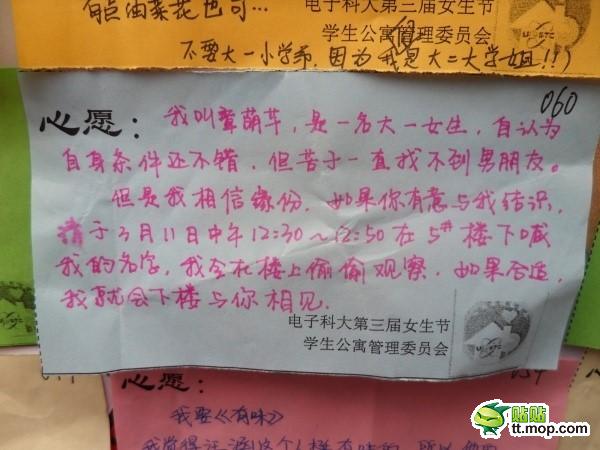 有点油菜花也可...
电子科大第三届女生节
学生公寓管理委员会
不要大一小学弟,因为我是大二大学姐!!)
060
心愿: 我叫 萌芊,是一名大一女生,自认为
自身条件还不错,但苦于一直找不到男朋友。
但是我相信缘份,如果你有意与我结识,
请于3月11日中午12:30~12:50在5#楼下喊
我的名字,我会在楼上偷偷观察,如果合适,
我就会下楼与你相见.
电子科大第三届女生节
学生公寓管理委员会
心愿:
054
我要《有味》
贴贴
tt.mop.com